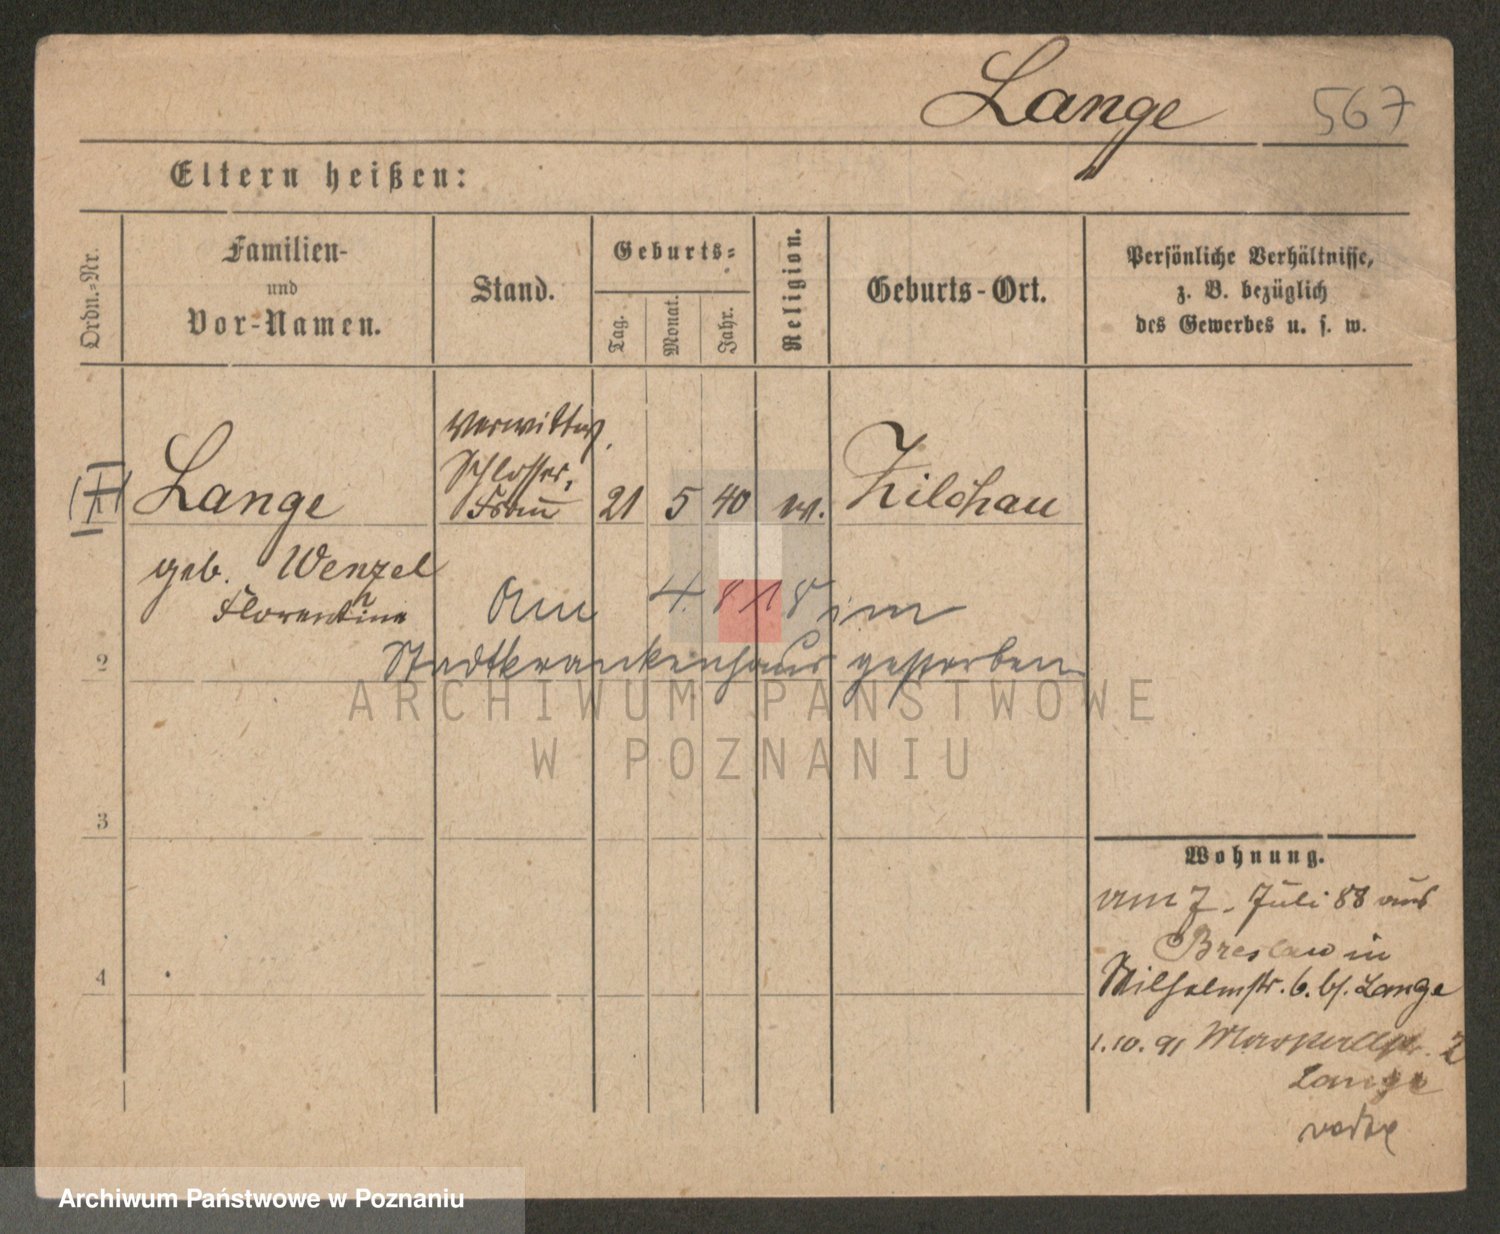 Lange 567
Eltern heißen:
Ordn.-Nr.
Familien-
und
Vor-Namen.
Stand.
Geburts-
Tag.
Monat.
Jahr.
Religion.
Geburts-Ort.
Persönliche Verhältnisse,
z. B. bezüglich
des Gewerbes u. s. w.
Lange
geb. Wenzel
Florentine
Schlosser,
Frau
21 5 40
am 4. 8 18 im
Stadtkrankenhaus gestorben
2
3
4
Wohnung.
am 7. Juli 88 aus
Breslau in
Wilhelmstr. 6. b/. Lange
1.10.91
Lange
ARCHIWUM PAŃSTWOWE
W POZNANIU
Archiwum Państwowe w Poznaniu